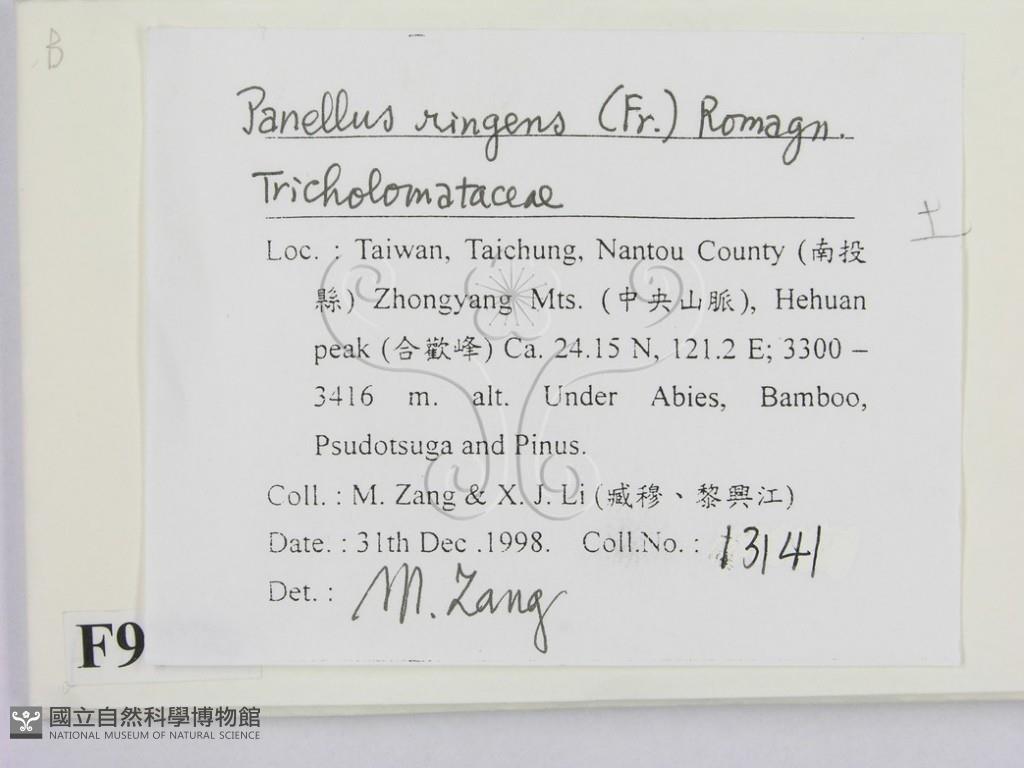 B
Panellus ringens (Fr.) Romagn.
Tricholomataceae
土
Loc. : Taiwan, Taichung, Nantou County (南投
縣) Zhongyang Mts. (中央山脈), Hehuan
peak (合歡峰) Ca. 24.15 N, 121.2 E; 3300 –
3416 m. alt. Under Abies, Bamboo,
Psudotsuga and Pinus.
Coll. : M. Zang & X. J. Li (臧穆、黎興江)
Date. : 31th Dec .1998. Coll.No. : 13141
Det. : M. Zang
F9
國立自然科學博物館
NATIONAL MUSEUM OF NATURAL SCIENCE